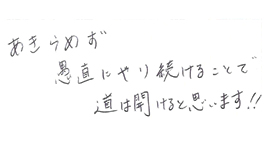 あきらめず
愚直にやり続けることで
道は開けると思います!!